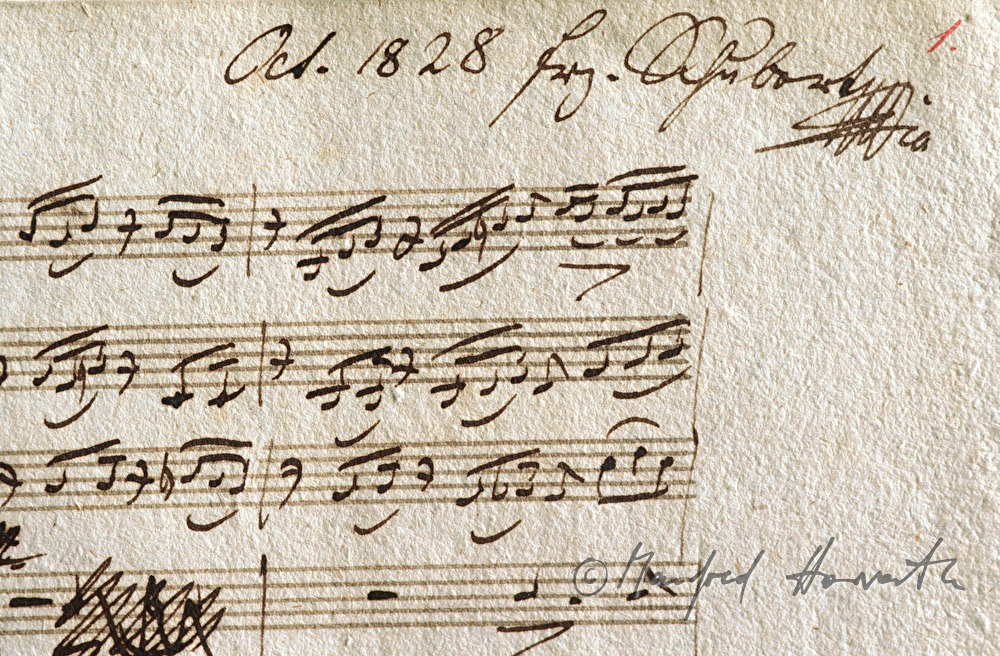 Oct. 1828 Frz. Schubert mpia
1.
© Manfred Horvath